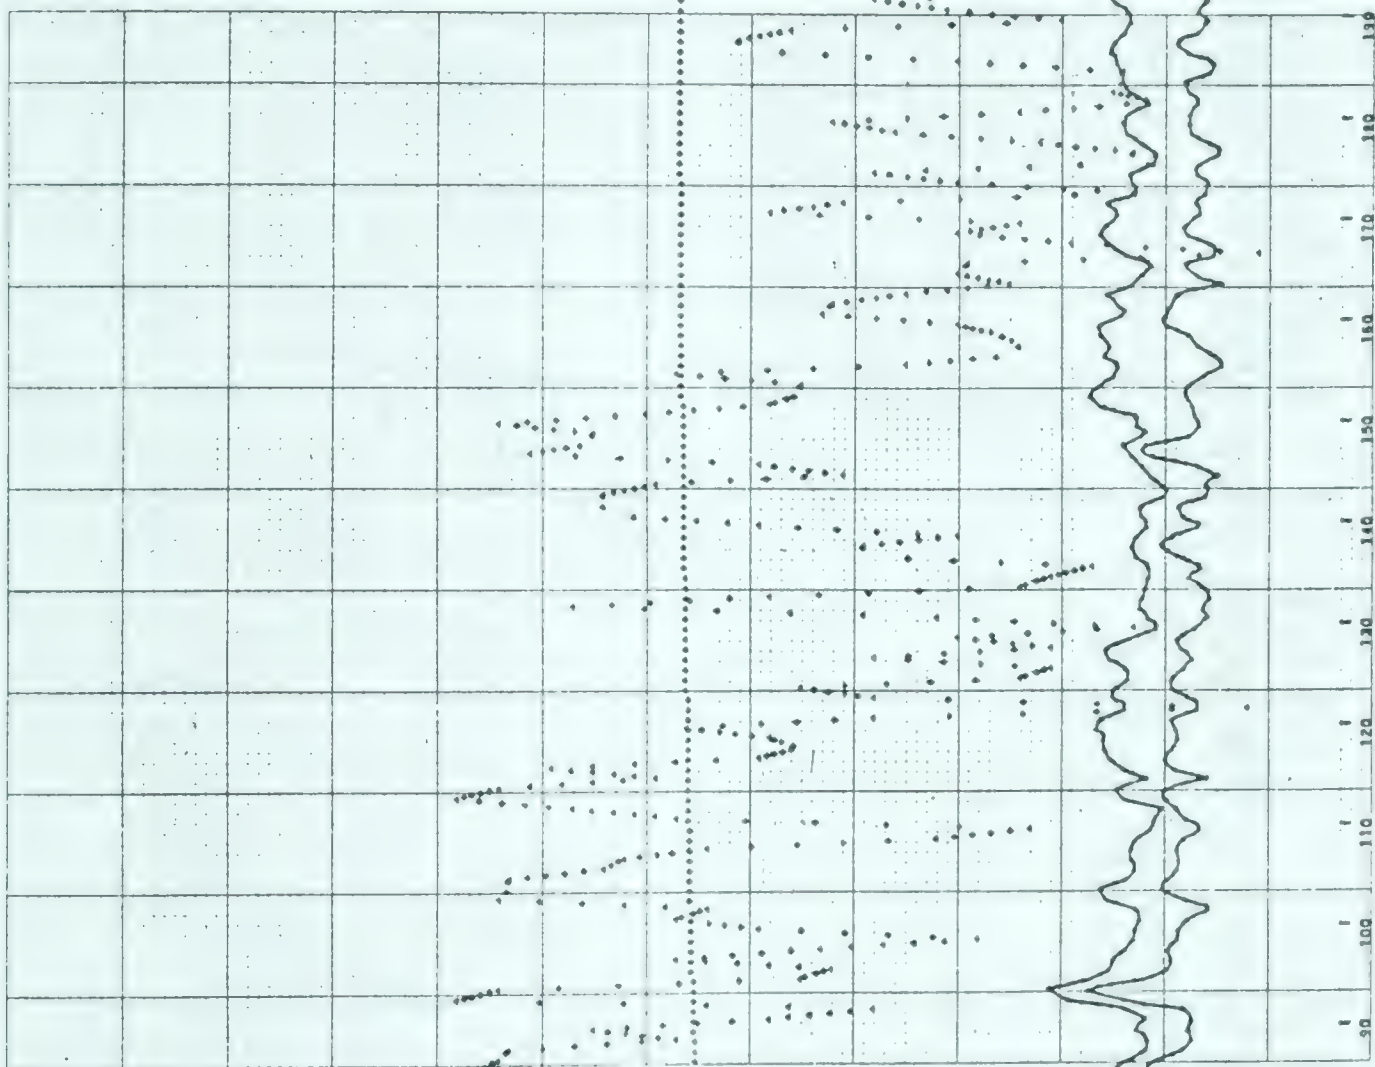 190
180
170
160
150
140
130
120
110
100
90